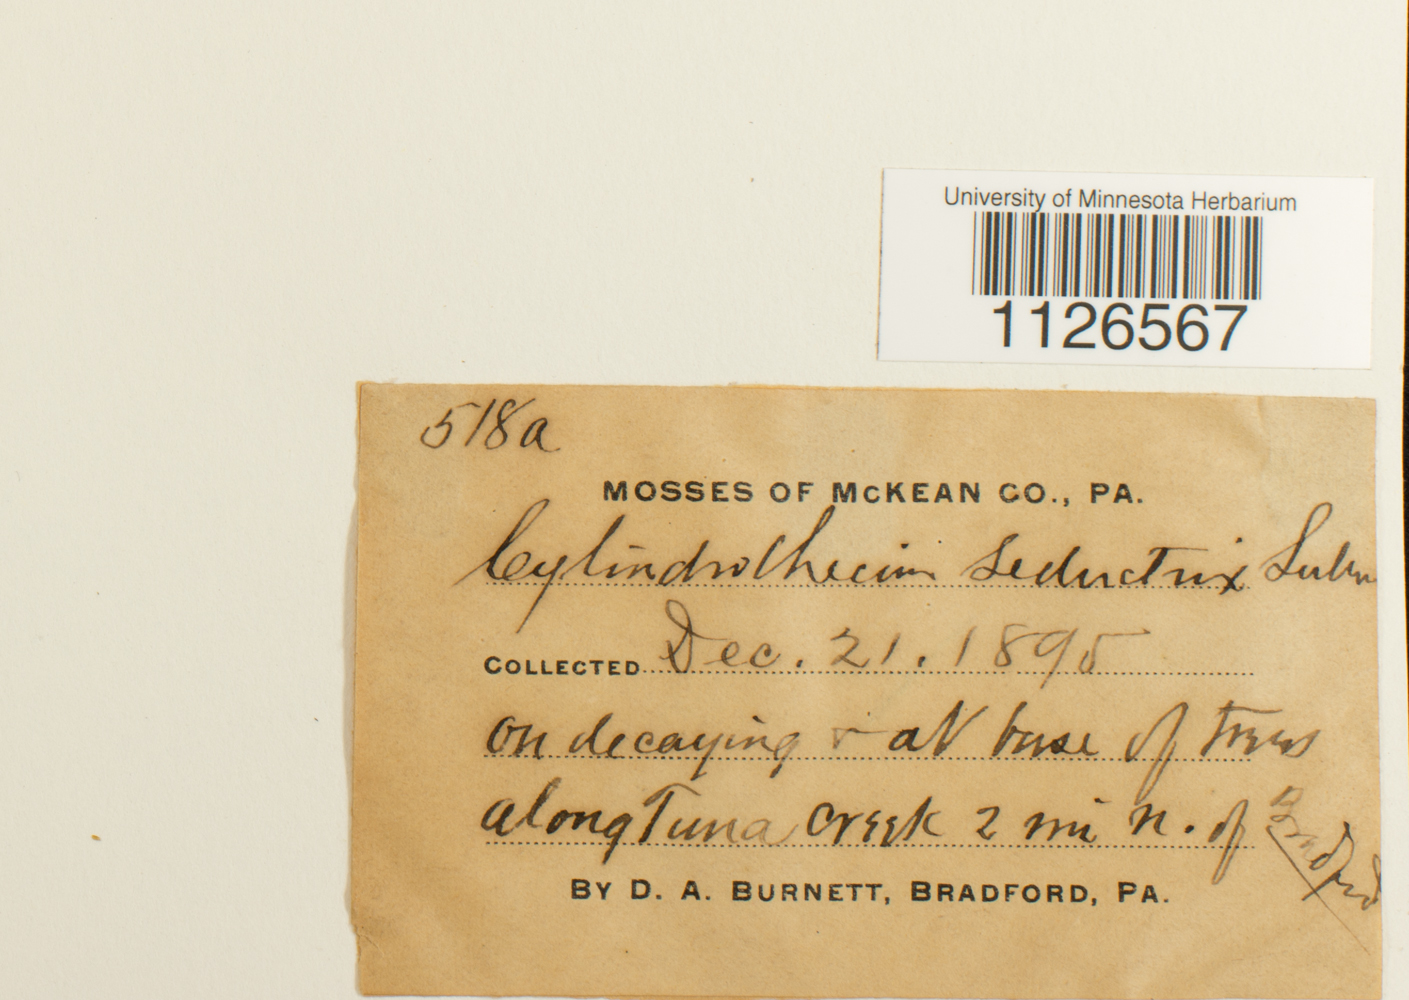 University of Minnesota Herbarium
1126567
518a
MOSSES OF McKEAN CO., PA.
Cylindrothecium seductrix
COLLECTED Dec. 21. 1895
on decaying & at base of trees
along Tuna Creek 2 mi n. of Bradford
BY D. A. BURNETT, BRADFORD, PA.